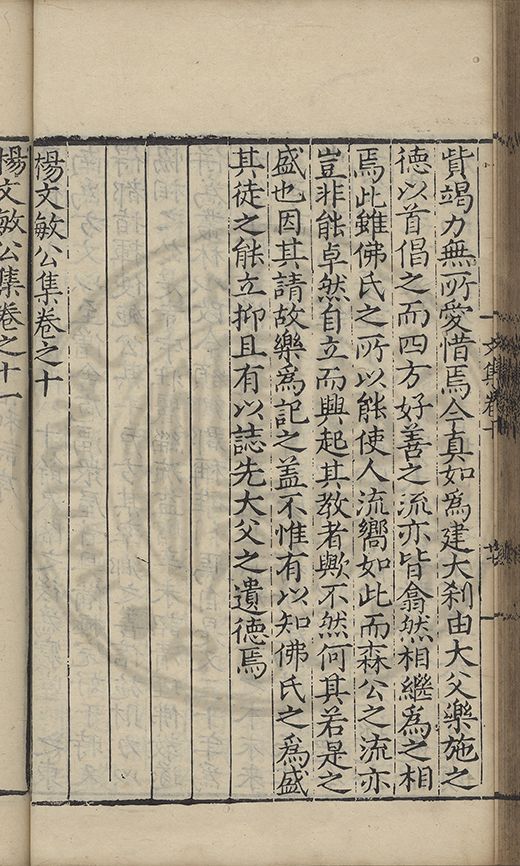 貲竭力無所愛惜焉今真如爲建大刹由大父樂施之
德以首倡之而四方好善之流亦皆翕然相繼爲之相
焉此雖佛氏之所以能使人流嚮如此而森公之流亦
豈非能卓然自立而興起其教者歟不然何其若是之
盛也因其請故樂爲記之盖不惟有以知佛氏之爲盛
其徒之能立抑且有以誌先大父之遺德焉
楊文敏公集卷之十
楊文敏公集卷之十一